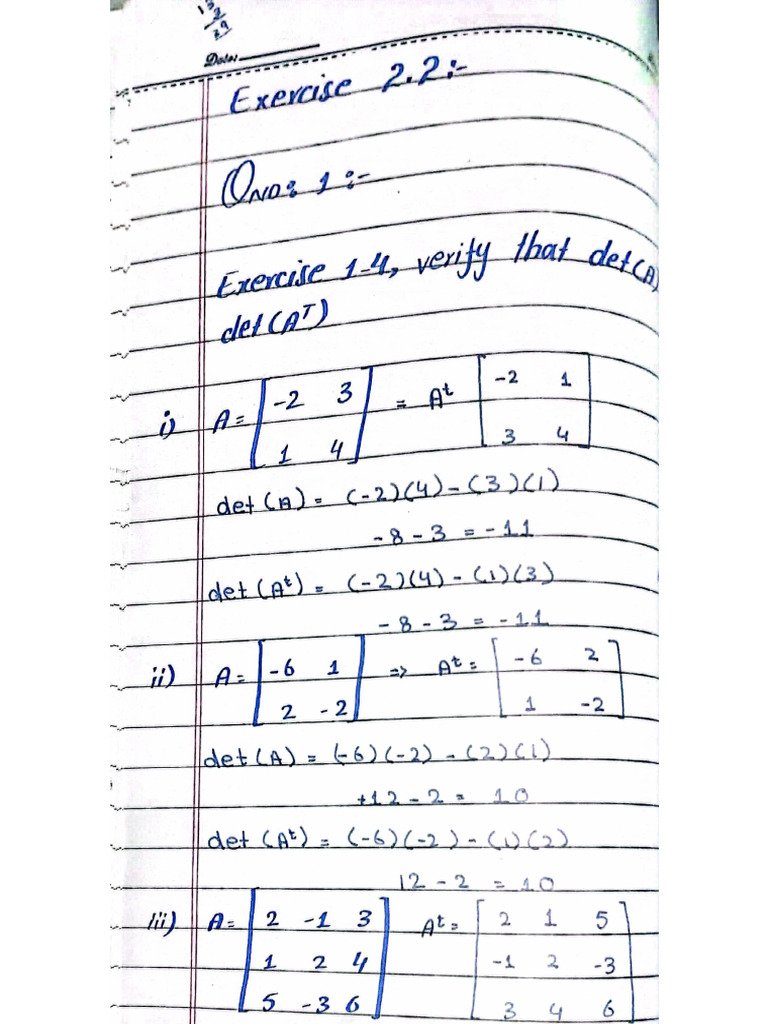 Date:
Exercise 2.2:-
Qno: 1:-
Exercise 1-4, verify that det(A)
det(Aᵀ)
i) A = [-2 3 = Aᵗ [-2 1
1 4] 3 4]
det(A) = (-2)(4)-(3)(1)
-8-3 = -11
det(Aᵗ) = (-2)(4)-(1)(3)
-8-3 = -11
ii) A = [-6 1 => Aᵗ = [-6 2
2 -2] 1 -2]
det(A) = (-6)(-2)-(2)(1)
+12-2 = 10
det(Aᵗ) = (-6)(-2)-(1)(2)
12-2 = 10
iii) A = [2 -1 3 Aᵗ = [2 1 5
1 2 4 -1 2 -3
5 -3 6] 3 4 6]